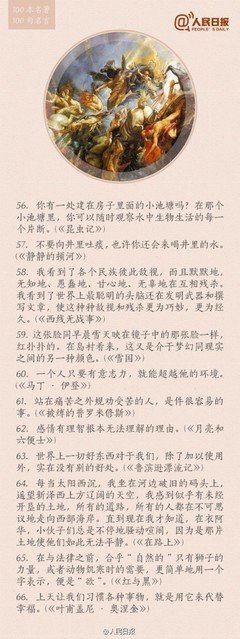 100本名著
100句名言
@人民日报
PEOPLE'S DAILY
56. 你有一处建在房子里面的小池塘吗？在那个
小池塘里，你可以随时观察水中生物生活的每一
个片断。(《昆虫记》)
57. 不要向井里吐痰，也许你还会来喝井里的水。
(《静静的顿河》)
58. 我看到了各个民族彼此敌视，而且默默地，
无知地、愚蠢地、甘心地、无辜地在互相残杀。
我看到了世界上最聪明的头脑还在发明武器和撰
写文章，使这种种敌视和残杀更为巧妙，更为经
久。(《西线无战事》)
59. 这张脸同早晨雪天映在镜子中的那张脸一样，
红扑扑的。在岛村看来，这又是介于梦幻同现实
之间的另一种颜色。(《雪国》)
60. 一个人只要有意志力，就能超越他的环境。
(《马丁·伊登》)
61. 站在痛苦之外规劝受苦的人，是件很容易的
事。(《被缚的普罗米修斯》)
62. 感情有理智根本无法理解的理由。(《月亮和
六便士》)
63. 世界上一切好东西对于我们，除了加以使用
外，实在没有别的好处。(《鲁滨逊漂流记》)
64. 每当太阳西沉，我坐在河边破旧的码头上，
遥望新泽西上方辽阔的天空，我感到似乎有未经
开垦的土地，所有的道路，所有的人都在不可思
议地走向西部海岸。直到现在我才知道，在衣阿
华，小伙子们总是不停地骚动喧闹，因为是那片
土地使他们如此无法平静。(《在路上》)
65. 在与法律之前，合乎“自然的”只有狮子的
力量，或者动物饥寒时的需要，更简单地用一个
字表示，便是“欲”。(《红与黑》)
66. 上天让我们习惯各种事物，就是用它来代替
幸福。(《叶甫盖尼·奥涅金》)
@人民日报